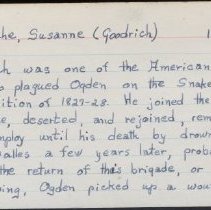 he, Susanne (Goodrich) 1
h was one of the American
o plagued Ogden on the Snake
ition of 1827-28. He joined the
e, deserted, and rejoined, rem
mploy until his death by drown
alles a few years later, prob
the return of this brigade, or
ing, Ogden picked up a wou